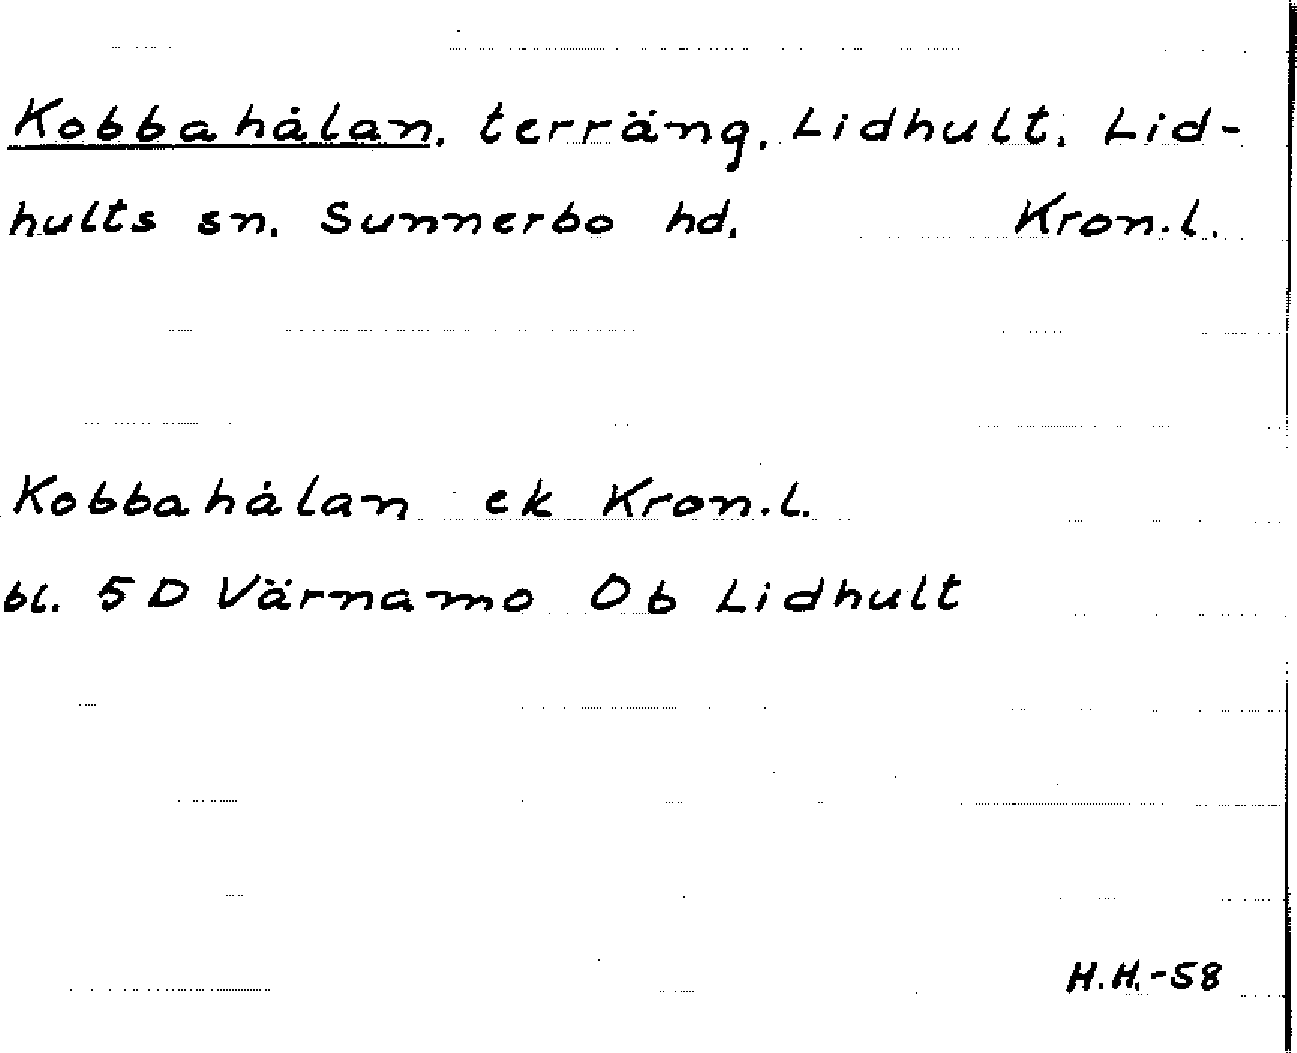 Kobbahålan, terräng, Lidhult, Lid-
hults sn, Sunnerbo hd, Kron.l.
Kobbahålan ek Kron.l.
bl. 5D Värnamo 0b Lidhult
H.H.-58